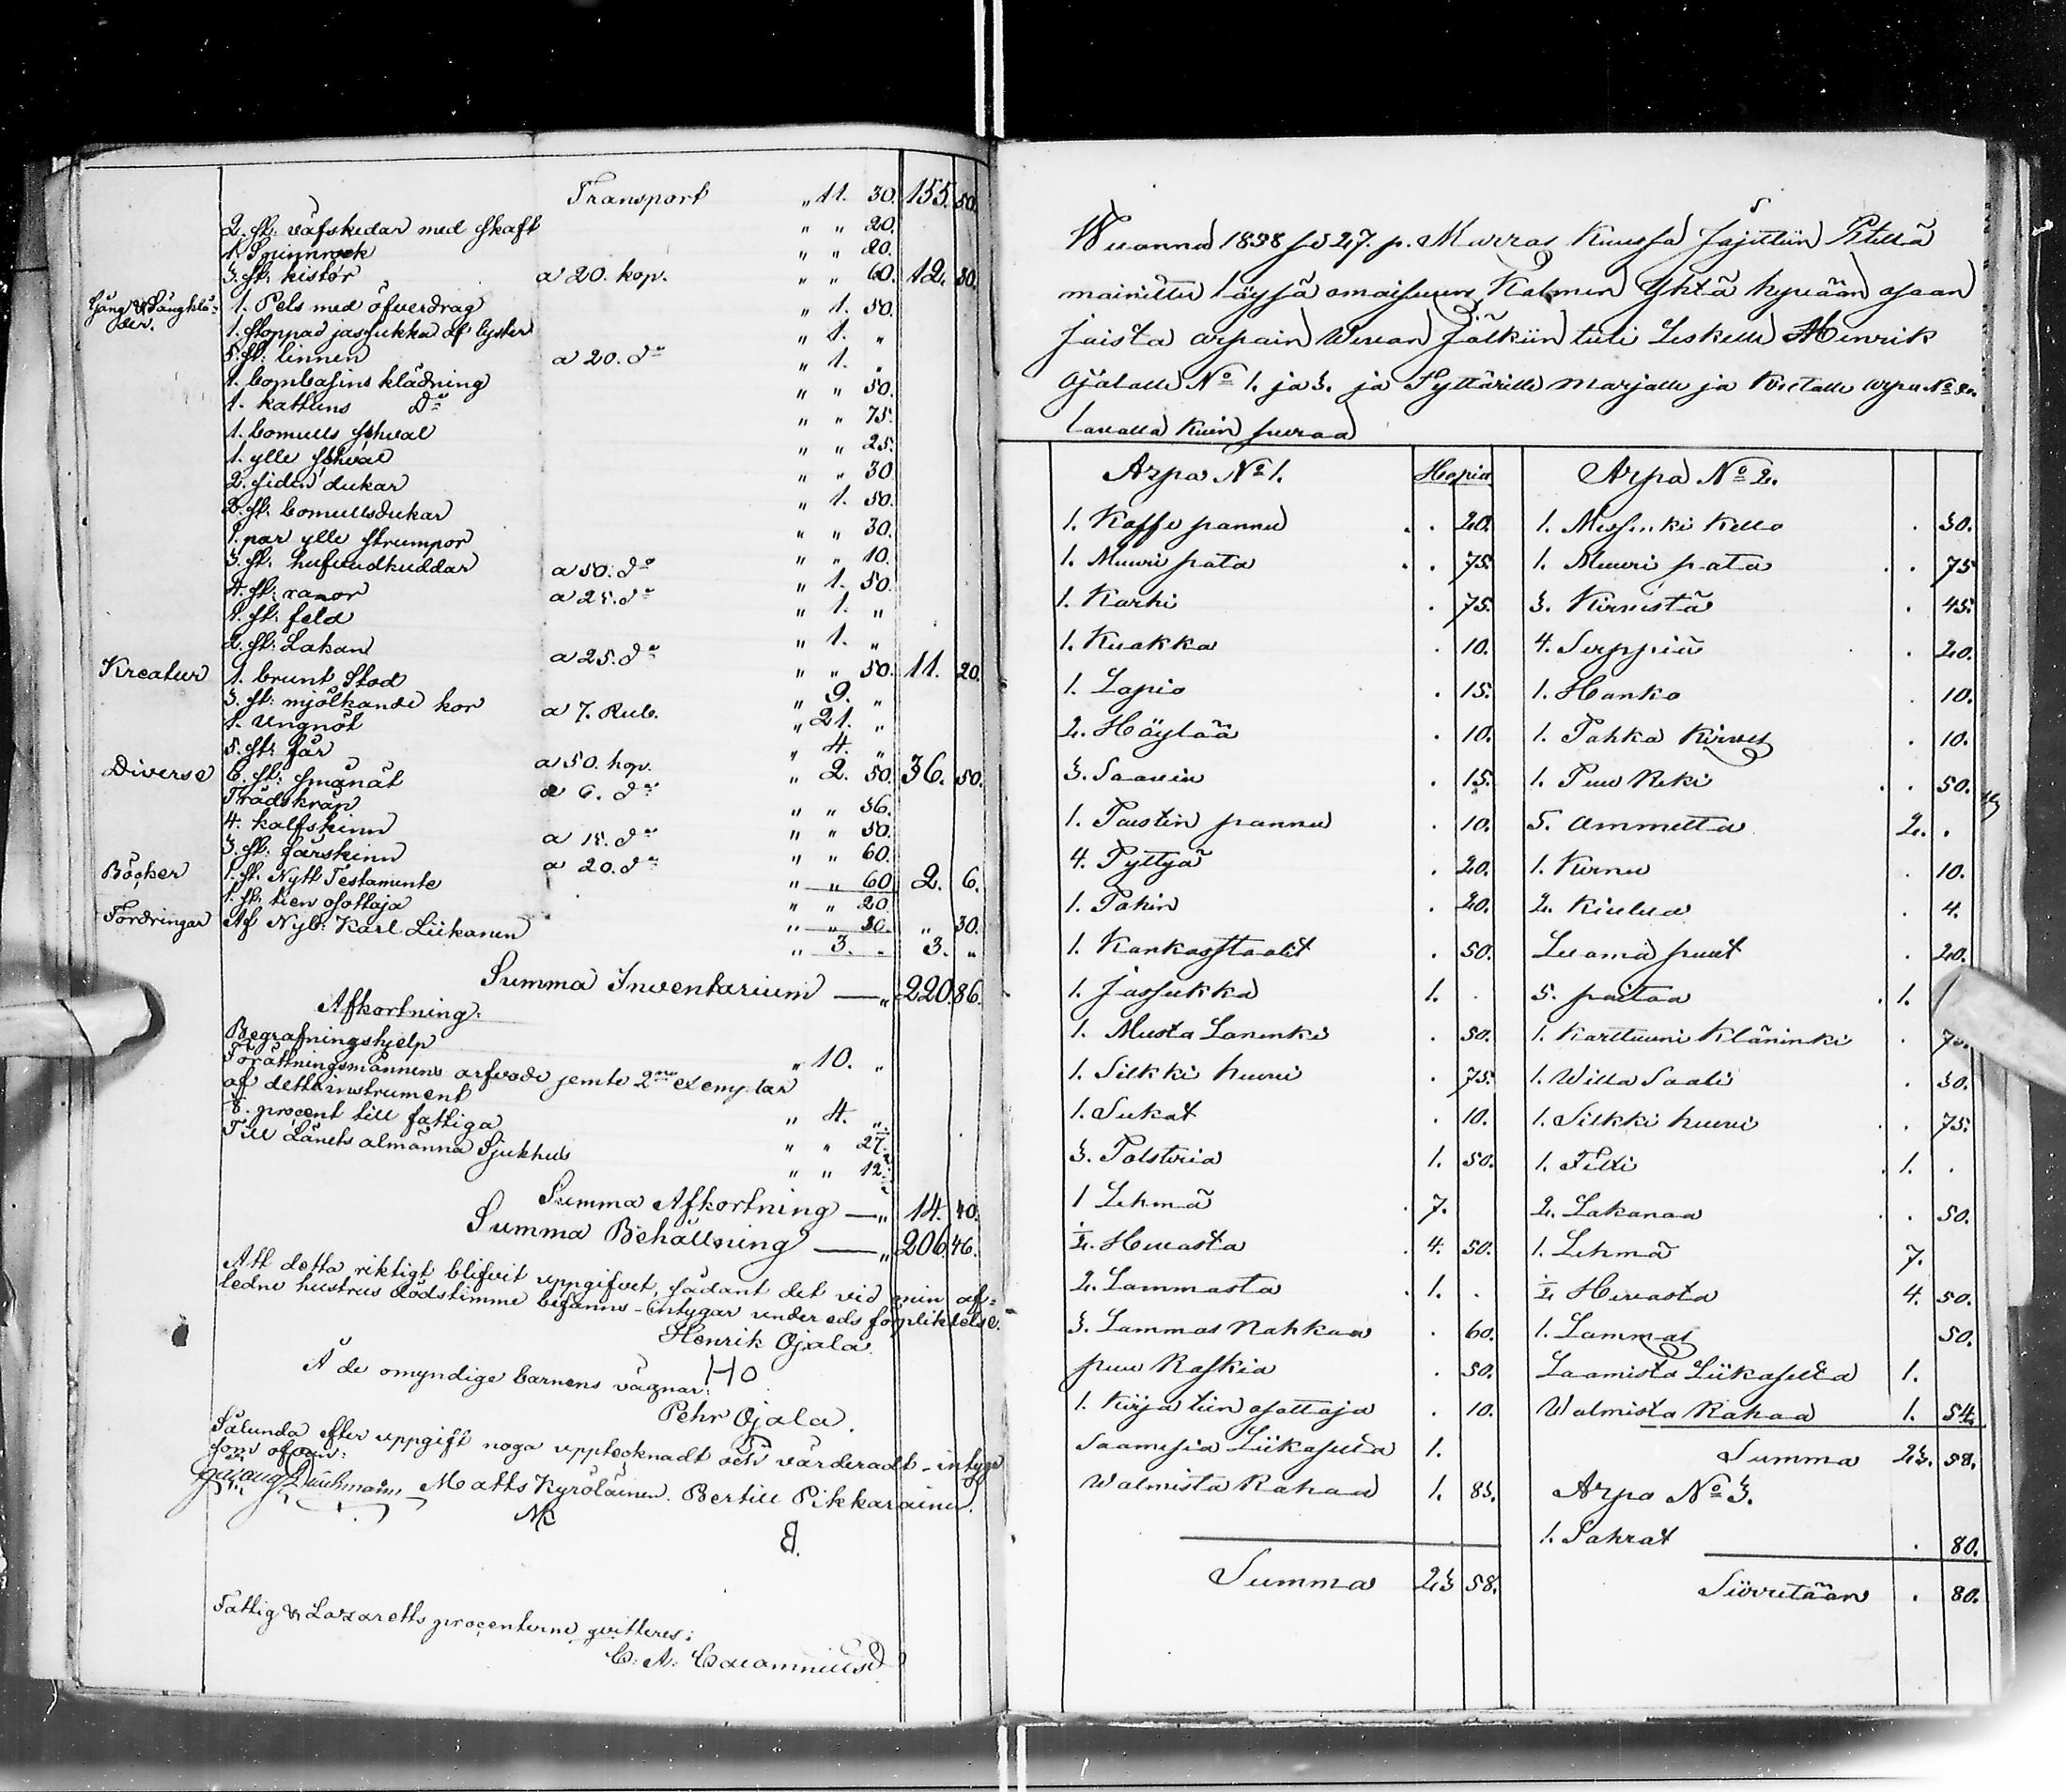 Transport „ 11. 30. 155. 50.
2. st: väfskedar med skaft „ „ 20.
1. Spinnrock „ „ 20.
3. st: kistor a 20. kop. „ „ 60. 12. 30.
Gång & Sängklä-
der.
1. Pels med öfverdrag „ 1. 50.
1. stoppad jassukka af lyster „ 1. „
5. st: linnen a 20. do „ 1. „
1. bombasins klädning „ „ 50.
1. kattuns Do „ „ 75.
1. bomulls schval „ „ 25.
1. ylle schval „ „ 30
2. siden dukar „ 1. 50.
2. st: bomullsdukar „ „ 30.
1. par ylle strumpor „ „ 10.
3. st. hufvudkuddar a 50. do „ 1. 50.
4. st: ranor a 25. do „ 1. „
1. st: feld „ 1. „
2. st: Lakan a 25. do „ „ 50. 11. 20.
Kreatur 1. brunt Stod „ 9. „
3. st: mjölkande kor a 7. Rub. „ 21. „
1. Ungnöt „ 4. „
5. st: får a 50. kop. „ 2. 50. 36. 50.
Diverse 6. st: smånät a 6. do „ „ 36.
Trädskräp „ „ 50.
4. kalfskinn a 15. do „ „ 60.
3. st: fårskinn a 20. do „ „ 60 2. 6.
Böcker 1. st. Nytt Testamente „ „ 20
1. st. tien osottaja „ „ 10. „ 30.
Fordringar Af Nyb: Karl Liikanen „ 3. „ 3. „
Summa Inventarium — „ 220. 86.
Afkortning:
Begrafningshjelp „ 10. „
Förättningsmännens arfvode jemte 2ne exemplar
af detta instrument „ 4. „
8. procent till fattiga „ „ 27.
Till Länets almänna Sjukhus „ „ 12.
Summa Afkortning — „ 14. 40.
Summa Behållning — „ 206. 46.
Att detta riktigt blifvit uppgifvet, sådant det vid min af-
ledne hustrus dödstimme befanns - intygar under eds förpliktelse.
Henrik Ojala.
HO
Å de omyndige barnens vägnar:
Pehr Ojala.
Sålunda efter uppgift noga upptecknadt och värderadt - intyga
som ofvan:
Matts Kyröläinen. Bertill Pikkarainen.
B.
Fattig & Lazaretts procenterne qvitteres:
C: A:
Wuonna 1858 p. Marras Kuussa Jajettiin
mainittu täyssä omaisuus, Kolmen Yhtä hyvään osaan
joista arpain Jälkiin tuli Leskelle Henrik
Ojalalle No 1. ja 3. ja Tyttärille Marjalle ja arpa No 2.
tavalla kuin
Arpa No 1. Hopia
1. Kaffe pannu . . 20.
1. Muuri pata . . 75.
1. Karhi . 75.
1. Kuokka . 10.
1. Lapio . 15.
2. Höylää . 10.
3. Saavia . 15.
1. Paistin pannu . 10.
4. Pyttyä . 20.
1. Pahin . 20.
1. Kankasstaalit . 50.
1. Jassukka 1. .
1. Musta Laninki . 50.
1. Silkki huivi . 75.
1. Sukat . 10.
3. Polstria 1. 50.
1 Lehmä . 7.
½. Hevasta . 4. 50.
2. Lammasta . 1. .
3. Lammas Nahkaa . 60.
puu Raskia . 50.
1. Kirja tien osottaja . 10.
Saamisia Liikaselta 1.
Walmista Rahaa 1. 83.
Summa 23 58.
Arpa No 2.
1. Messinki Kello . 30.
1. Muuri pata . . 75
3. Kirvestä . 45.
4. Sirppiä . 20.
1. Hanko . 10.
1. Pahka Kirves . 10.
1. Puu Reki . . 50.
5. ammetta 2. .
1. Kirnu . 10.
2. Kiulua . 4.
Luoma puut . 20.
5. paitaa . 1.
1. Karttuuni Kläninki .
1. Willa Saali . 30.
1. Silkki huivi . . 75.
1. Filti . 1. .
2. Lakanaa . . 50.
1. Lehmä 7.
½ Hevasta 4. 50.
1. Lammas 50.
Saamista Liikaselta 1.
Walmista Rahaa 1. 54.
Summa 23. 58.
Arpa No 3.
1. Pahrat . 80.
Siirretään . 80.